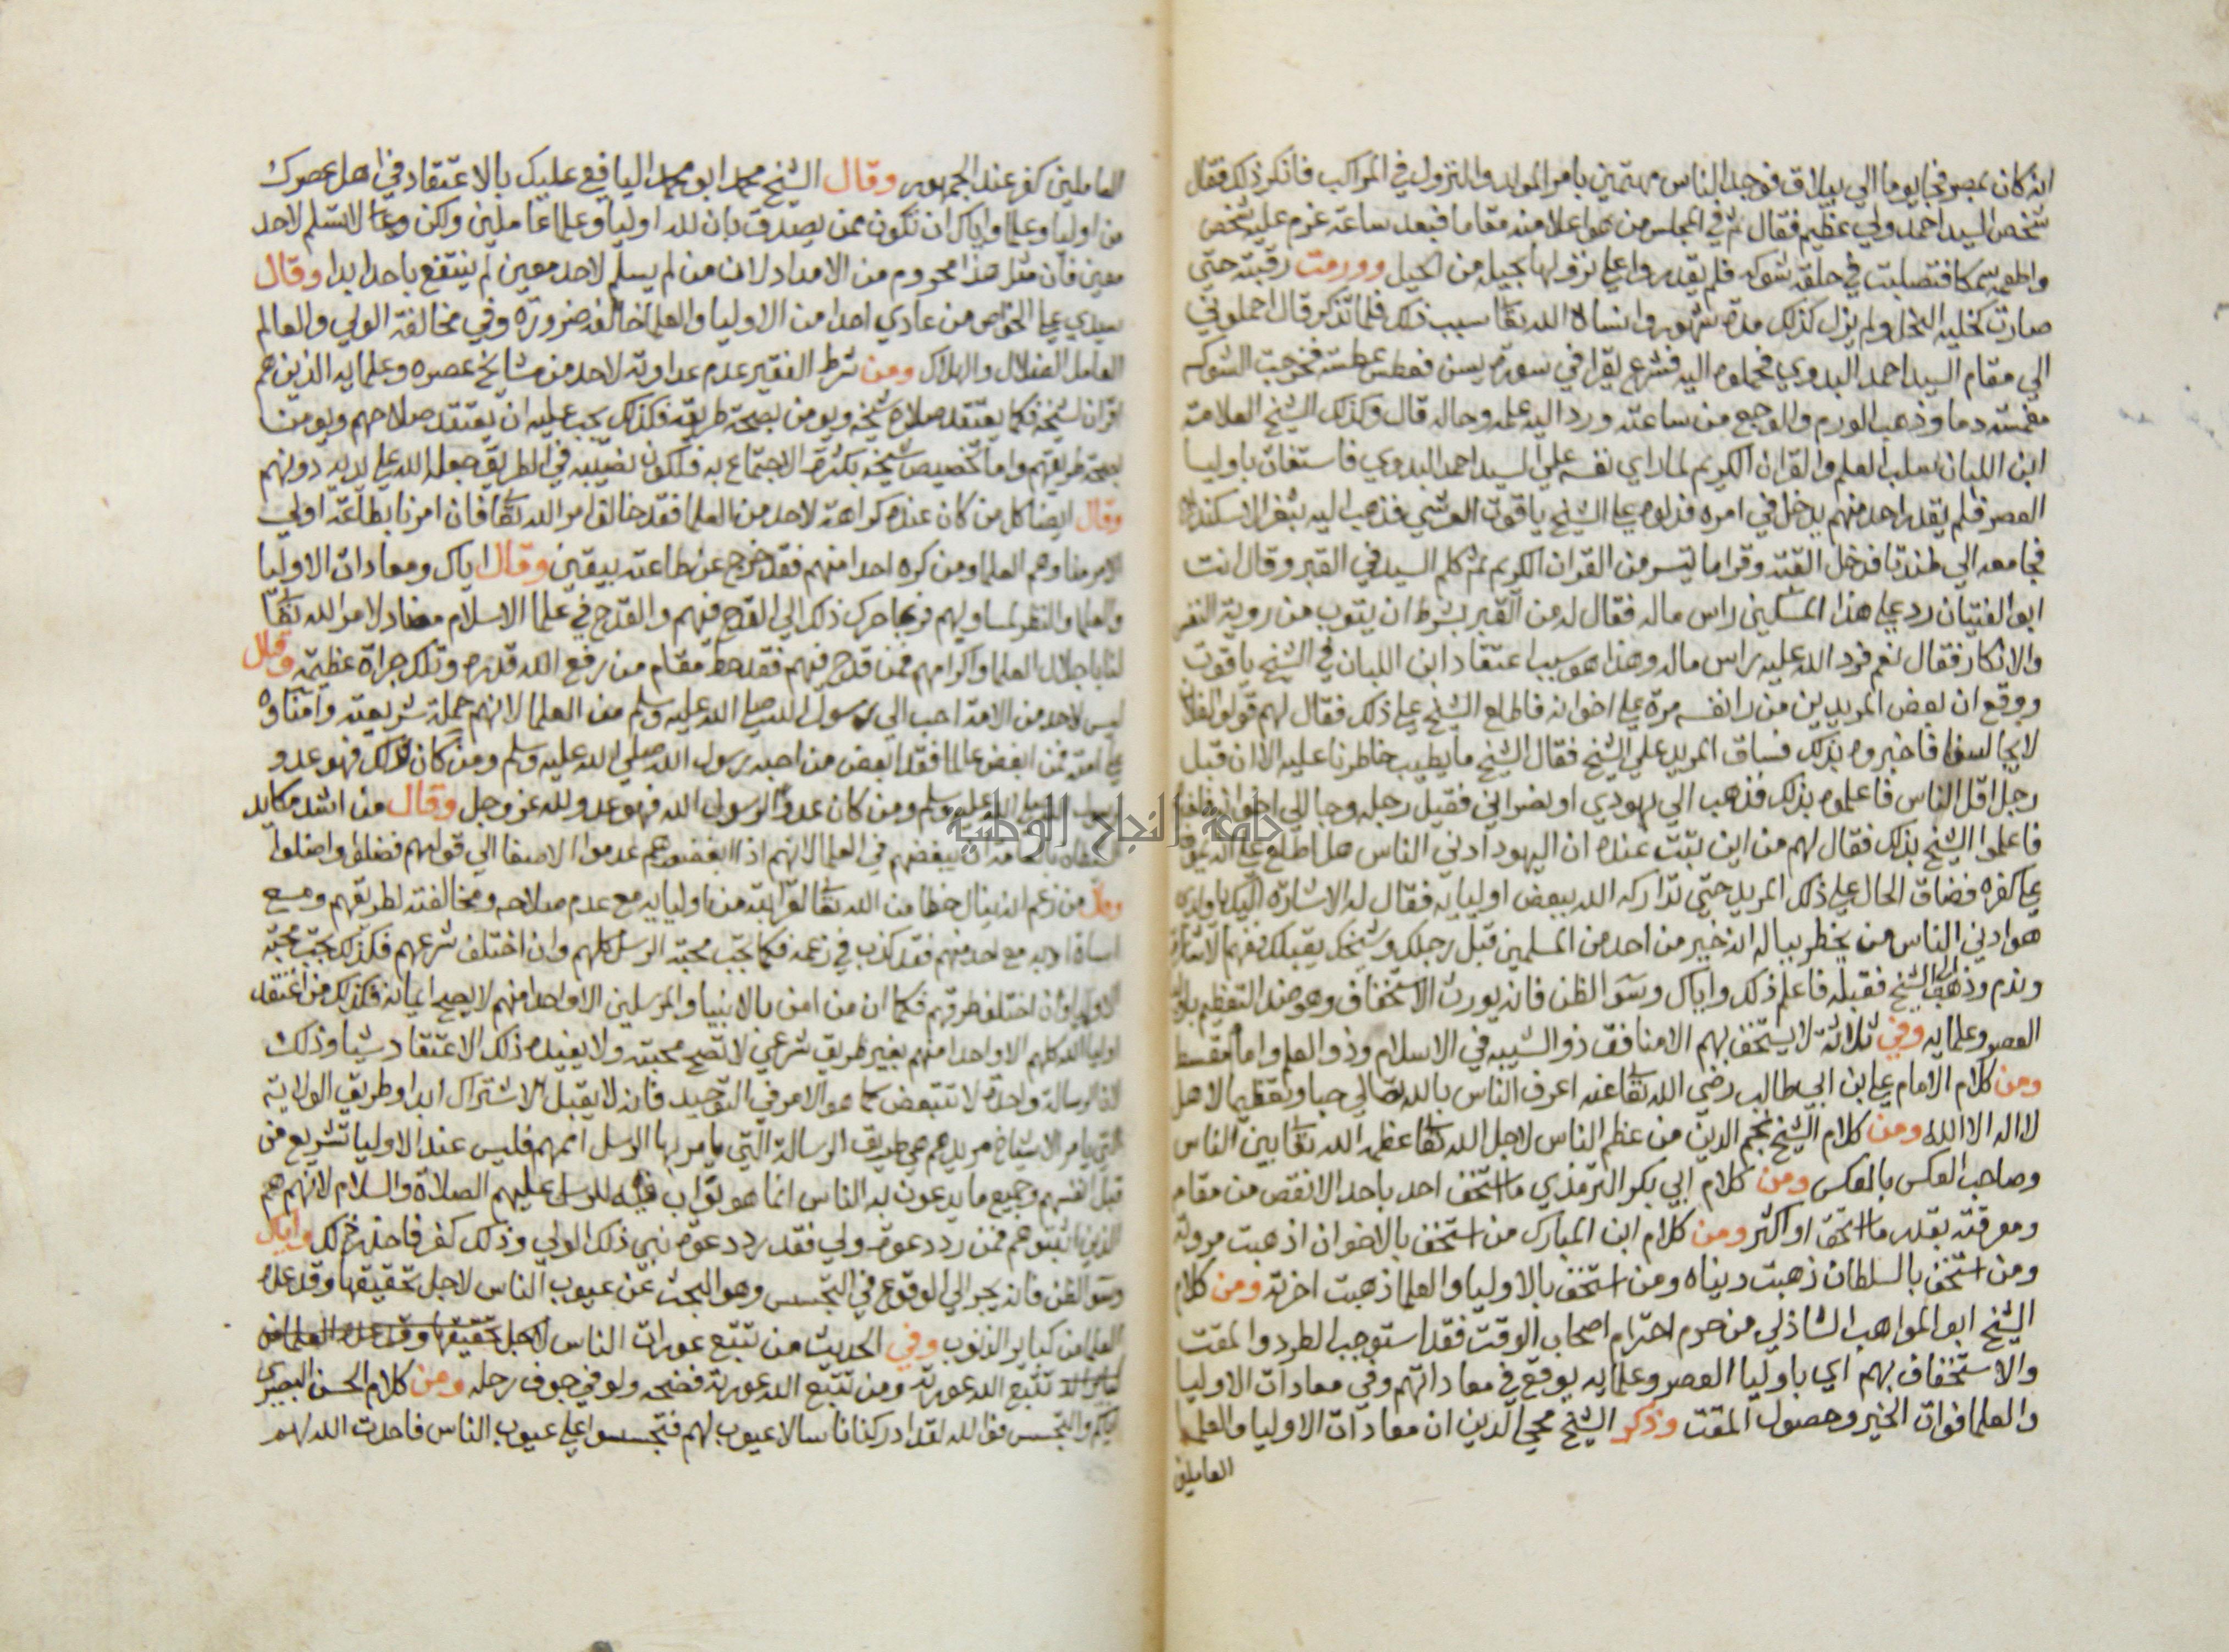 انه كان بمصر فجا يوما الي بولاق فوجد الناس مهتمين بامر المولد والنزول في المراكب فانكر ذلك فقال
شخص السيد احمد ولي عظيم فقال ثم في المجلس من هو اعلا منه مقاما فبعد ساعة عزم عليه شخص
واطعمه سمكا فتصلبت في حلقه شوكه فلم يقدروا علي نزولها بحيله من الحيل وورمت رقبته حتي
صارت كخلية النحل ولم يزل كذلك مدة شهور وانساه الله تعا سبب ذلك فلما تذكر قال احملوني
الي مقام السيد احمد البدوي فحملوه اليه فشرع يقرا في سورة يسن فعطس عطسة فخرجت الشوكه
مغمسة دما وذهب الورم والوجع من ساعته ورد اليه علمه وحاله قال وكذلك الشيخ العلامة
ابن اللبان سلب العلم والقران الكريم لما راي نفسه علي السيد احمد البدوي فاستغاث باوليا
العصر فلم يقدر احد منهم يدخل في امره فدلوه علي الشيخ ياقوت العرشي فذهب اليه بثغر الاسكندرية
فجا معه الي طندتا فدخل القبة وقرا ما تيسر من القران الكريم ثم كلم السيد في القبر وقال انت
ابو الفتيان رد علي هذا المسكين راس ماله فقال له من القبر بشرط ان يتوب من روية النفس
والانكار فقال نعم فرد الله عليه راس ماله وهذا هو سبب اعتقاد ابن اللبان في الشيخ ياقوت
ووقع ان بعض المريدين من را نفسه مرة علي اخوانه فاطلع الشيخ علي ذلك فقال لهم قولوا لفلان
لا يجالسنا فاخبروه بذلك فساق المريد علي الشيخ فقال الشيخ ما يطيب خاطرنا عليه الا ان قبل
رجل اقل الناس فاعلموه بذلك فذهب الي يهودي او نصراني فقبل رجله وجا الي اخوانه
فاعلموا الشيخ بذلك فقال لهم من اين ثبت عنده ان اليهود ادني الناس هل اطلع علي انه يموت
علي كفره فضاق الحال علي ذلك المريد حتي تداركه الله ببعض اوليايه فقال له الاشارة اليك يا ولدي
هو ادني الناس من يخطر بباله انه خير من احد من المسلمين قبل رجلك وشيخك يقبلك ففهم الاشارة
وندم وذهب الي الشيخ فقبله فاعلم ذلك واياك وسوا الظن فانه يورث الاستخفاف وهو ضد التعظيم
العصر وعلمايه وفي ثلاثة لا يستخف بهم الا منافق ذو الشيبه في الاسلام وذو العلم وامام مقسط
ومن كلام الامام علي ابن ابي طالب رضي الله تعا عنه اعرف الناس بالله تعالي حبا وتعظيما لاهل
لا اله الا الله ومن كلام الشيخ نجم الدين من عظم الناس لاجل الله تعا عظمه الله تعا بين الناس
وصاحب العكس بالعكس ومن كلام ابي بكر الترمذي ما استخف احد باحد الا نقص من مقامه
ومعرفته بقدر ما استخف او اكثر ومن كلام ابن المبارك من استخف بالاخوان اذهبت مروته
ومن استخف بالسلطان ذهبت دنياه ومن استخف بالاوليا والعلما ذهبت اخرته ومن كلام
الشيخ ابو المواهب الشاذلي من حرم احترام اصحاب الوقت فقد استوجب الطرد والمقت
والاستخفاف بهم اي باوليا العصر وعلمايه يوقع في معاداتهم وفي معادات الاوليا
والعلما فوات الخير وحصول المقت وذكر الشيخ محي الدين ان معادات الاوليا والعلما
العاملين
العاملين كفر عند الجمهور وقال الشيخ محمد ابو محمد اليافعي عليك بالاعتقاد في اهل عصرك
من اوليا وعلما واياك ان تكون ممن يصدق بان لله اوليا وعلما عاملين ولكن لا تسلم لاحد
معين فان مثل هذا محروم من الامداد لان من لم يسلم لاحد معين لم ينتفع باحد ابدا وقال
سيدي علي الخواص من عادي احدا من الاوليا والعلما خالفه ضرورة وفي مخالفة الولي والعالم
العامل الضلال والهلاك ومن شرط الفقير عدم عداوته لاحد من مشايخ عصره وعلمايه الذين هم
اقران لشيخه فكما يعتقد صلاح شيخه ويومن بصحة طريقه فكذلك يجب عليه ان يعتقد صلاحهم ويومن
بصحة طريقهم واما تخصيص شيخه بكثرة الاجتماع به فلكون نصيبه في الطريق جعله الله علي يديه دونهم
وقال ايضا كل من كان عنده كراهة لاحد من العلما فقد خالف امر الله تعا فان امرنا بطاعة اولي
الامر منا وهم العلما ومن كره احدا منهم فقد خرج عن طاعته بيقين وقال اياك ومعادات الاوليا
والعلما والنظر لمساويهم فربما جرك ذلك الي القدح فيهم والقدح في علما الاسلام مضاد لامر الله تعا
لنا باجلال العلما واكرامهم فمن قدح فيهم فقد حط مقام من رفع الله قدره وتلك جراة عظيمة وقال
ليس لاحد من الامة احب الي رسول الله صلي الله عليه وسلم من العلما لانهم حملة شريعته وامناوه
علي امته فمن ابغض عالما فقد ابغض من احبه رسول الله صلي الله عليه وسلم ومن كان كذلك فهو عدو
رسول الله صلي الله عليه وسلم ومن كان عدوا لرسول الله فهو عدو لله عز وجل وقال من اشد مكايد
الشيطان بالعامة ان يبغضهم في العلما لانهم اذا ابغضوهم عدموا الاصغا الي قولهم فضلوا واضلوا
وقال من زعم انه ينال حظا من الله تعا لقرابته من اوليايه مع عدم صلاحه ومخالفته لطريقهم ومع
اساة ادبه مع احد منهم فقد كذب في زعمه فكما تجب محبة الرسل كلهم وان اختلف شرعهم فكذلك تجب محبة
الاوليا وان اختلف طرقهم فكما ان من امن بالانبيا والمرسلين الا واحدا منهم لا يصح ايمانه فكذلك من اعتقد
اوليا الله كلهم الا واحدا منهم بغير طريق شرعي لا تصح محبته ولا يفيده ذلك الاعتقاد شيا وذلك
لان الرسالة واحدة لا تتبعض كما هو الامر في التوحيد فانه لا يقبل الاشتراك ابدا وطريق الولاية
التي يامر الاشياخ مريدهم هي طريق الرسالة التي يامر بها الرسل اممهم فليس عند الاوليا تشريع من
قبل انفسهم وجميع ما يدعون به الناس انما هو نواب فيه للرسل عليهم الصلاة والسلام لانهم هم
الذين اثبتوهم فمن رد دعوة ولي فقد رد دعوة نبي ذلك الولي وذلك كفر فاحذر ذلك واياك
وسوا الظن فانه يجر الي الوقوع في التجسس وهو البحث عن عيوب الناس لاجل تحقيقها وقد عده
العلما من كباير الذنوب وفي الحديث من تتبع عورات الناس لاجل تحقيقها وقد عده العلما من
كباير تتبع الله عورته ومن تتبع الله عورته فضحه ولو في جوف رحله ومن كلام الحسن البصري
اياكم والتجسس فوالله لقد ادركنا ناسا لا عيوب لهم فتجسسوا علي عيوب الناس فاحدث الله لهم
جامعة النجاح الوطنية